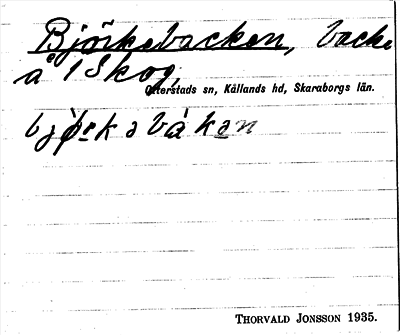 Björkebacken, backe
å 1 Skog,
Otterstads sn, Kållands hd, Skaraborgs län.
bjø̀rkəbákən
THORVALD JONSSON 1935.